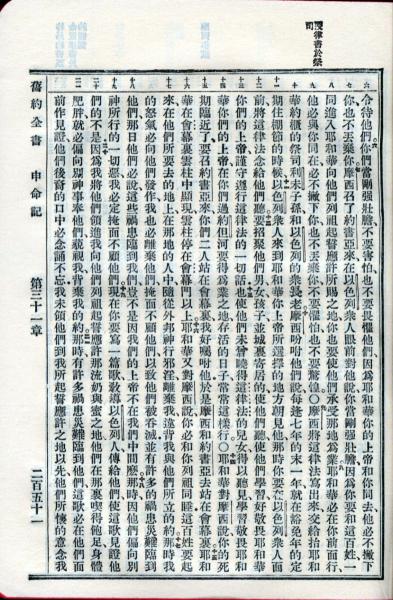 授律書於祭司
令待他們你們當剛強壯膽不要害怕也不要畏懼他們因為耶和華你的上帝和你同去他必不撇下
你也不丟棄你摩西召了約書亞來在以色列眾人眼前對他說你當剛強壯膽因為你要和這百姓一
同進入耶和華向他們列祖起誓應許所賜之地你也要使他們承受那地為業耶和華必在你前面行
他必與你同在必不撇下你也不丟棄你不要懼怕也不要驚惶〇摩西將這律法寫出來交給抬耶和
華約櫃的祭司利未子孫和以色列的眾長老摩西吩咐他們說每逢七年的末一年就在豁免年的定
期住棚節的時候以色列眾人來到耶和華你上帝所選擇的地方朝見他那時你要在以色列眾人面
前將這律法念給他們聽要招聚他們男女孩子並城裏寄居的使他們聽使他們學習好敬畏耶和華
你們的上帝謹守遵行這律法的一切話也使他們未曾曉得這律法的兒女得以聽見學習敬畏耶和
華你們的上帝在你們過約但河要得為業之地存活的日子常常這樣行〇耶和華對摩西說你的死
期臨近了要召約書亞來你們二人站在會幕裏我好囑咐他於是摩西和約書亞去站在會幕裏耶和
華在會幕裏雲柱中顯現雲柱停在會幕門以上耶和華又對摩西說你必和你列祖同睡這百姓要起
來在他們所要去的地上在那地的人中隨從外邦神行邪淫離棄我違背我與他們所立的約那時我
的怒氣必向他們發作我也必離棄他們掩面不顧他們以致他們被吞滅並有許多的禍患災難臨到
他們那日他們必說這些禍患臨到我們豈不是因我們的上帝不在我們中間麼那時因他們偏向別
神所行的一切惡我必定掩面不顧他們現在你要寫一篇歌敎導以色列人傳給他們使這歌見證他
們的不是因為我將他們領進我向他們列祖起誓應許那流奶與蜜之地他們在那裏喫得飽足身體
肥胖就必偏向別神事奉他們藐視我背棄我的約那時有許多禍患災難臨到他們這歌必在他們面
前作見證他們後裔的口中必念誦不忘我未領他們到我所起誓應許之地以先他們所懷的意念我
舊約全書 申命記 第三十一章 二百五十一